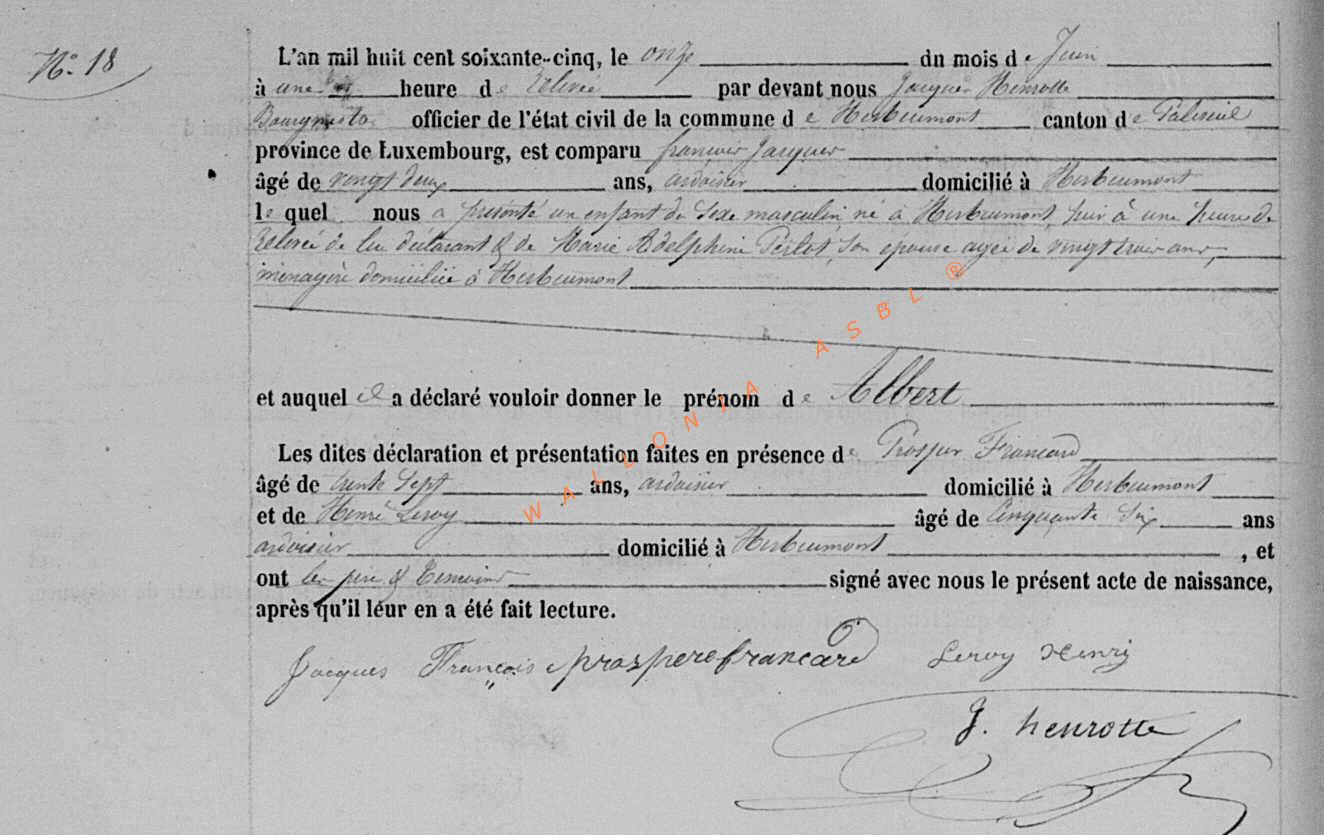 N° 18
L'an mil huit cent soixante-cinq, le onze du mois de Juin
à une heure de relevée par devant nous Jacques Henrotte
Bourgmestre officier de l'état civil de la commune de Herbeumont canton de Paliseul
province de Luxembourg, est comparu françois Jacques
âgé de vingt deux ans, ardoisier domicilié à Herbeumont
le quel nous a présenté un enfant de sexe masculin né à Herbeumont, à une heure de
relevée de lui déclarant & de Marie Adelphine Perlot, son épouse agée de vingt trois ans,
ménagère domiciliée à Herbeumont
et auquel il a déclaré vouloir donner le prénom de Albert
Les dites déclaration et présentation faites en présence de Prosper Francard
âgé de trente Sept ans, ardoisier domicilié à Herbeumont
et de Henri Leroy âgé de Cinquante Six ans
ardoisier domicilié à Herbeumont, et
ont les pere & temoins signé avec nous le présent acte de naissance,
après qu'il leur en a été fait lecture.
Jacques François prospere francard Leroy Henri
J. henrotte
WALLONIA ASBL ®